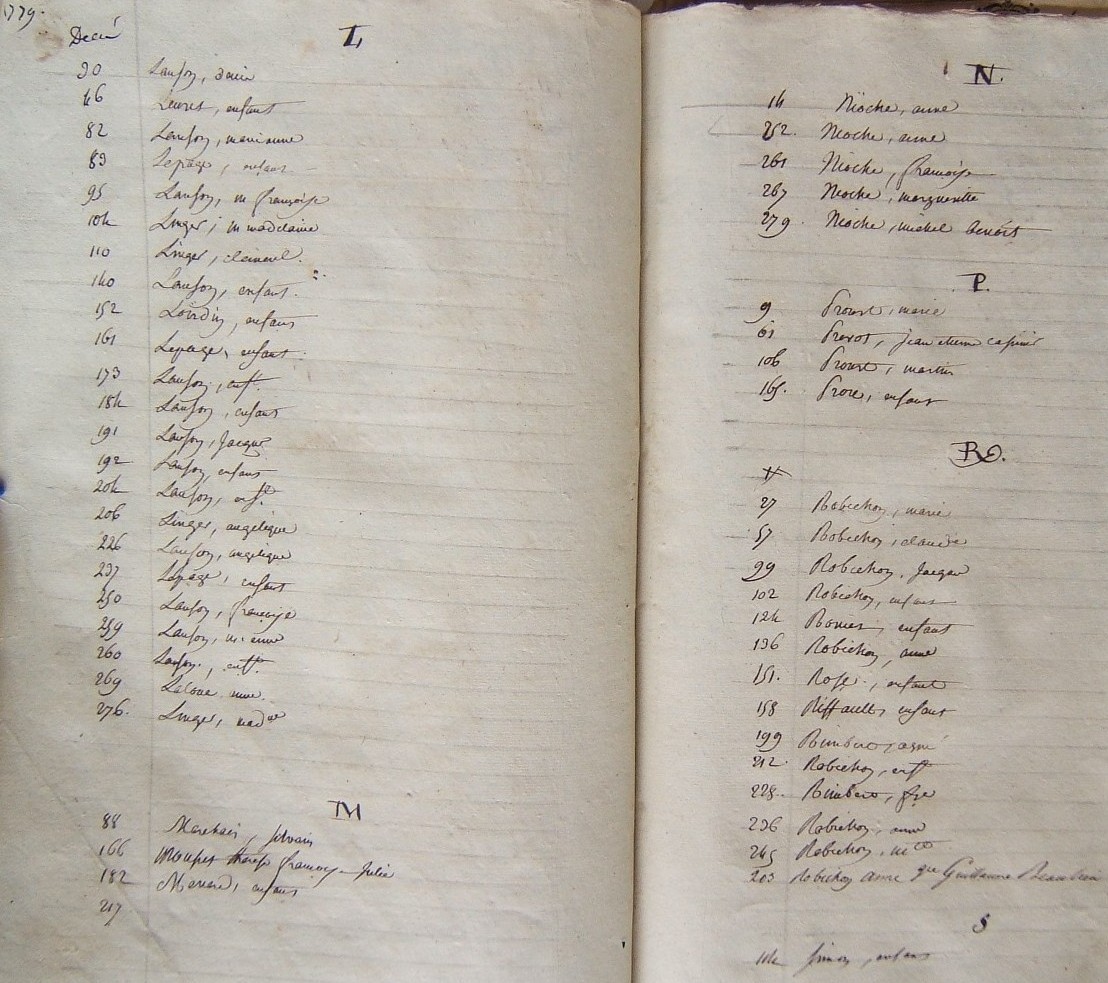 1779.
Décé
L
30 Lanson, denis
46 Leuret, enfant
82 Lanson, marianne
83 Lepage, enfant
95 Lanson, m françoise
104 Linger, m madelaine
110 Linger, clement.
140 Lanson, enfant.
152 Lourdin, enfans
161 Lepage, enfant
173 Lanson, enft.
184 Lanson, enfant
191 Lanson, Jacque
192 Lanson, enfans
204 Lanson, enft.
206 Linger, angelique
226 Lanson, angelique
237 Lepage, enfant
250 Lanson, françoise
259 Lanson, m. anne
260 Lanson, enft.
269 Laloue anne.
276. Linger, madne
M
88 Marchais, Silvain
166 françoise Julie
182 enfans
217
N.
14 Nioche, anne
252. Nioche, anne
261 Nioche, françoise
267 Nioche, margueritte
279. Nioche, michel benoist
P.
9 Proust, marie
61 Prevot, jean etienne casimir
106 Proust, martin
165. enfant
R.
27 Robichon, marie
57 Robichon, claude
99 Robichon, Jacque
102 Robichon, enfant
124 enfant
136 Robichon, anne
151. Rose, enfant
158 Riffault, enfant
199 Rimbert
212. Robichon, enft
228. Rimbert, fse
236 Robichon, anne
245 Robichon, mte
203 Robichon anne Guillaume Beaulieu
S
114 Simon, enfans